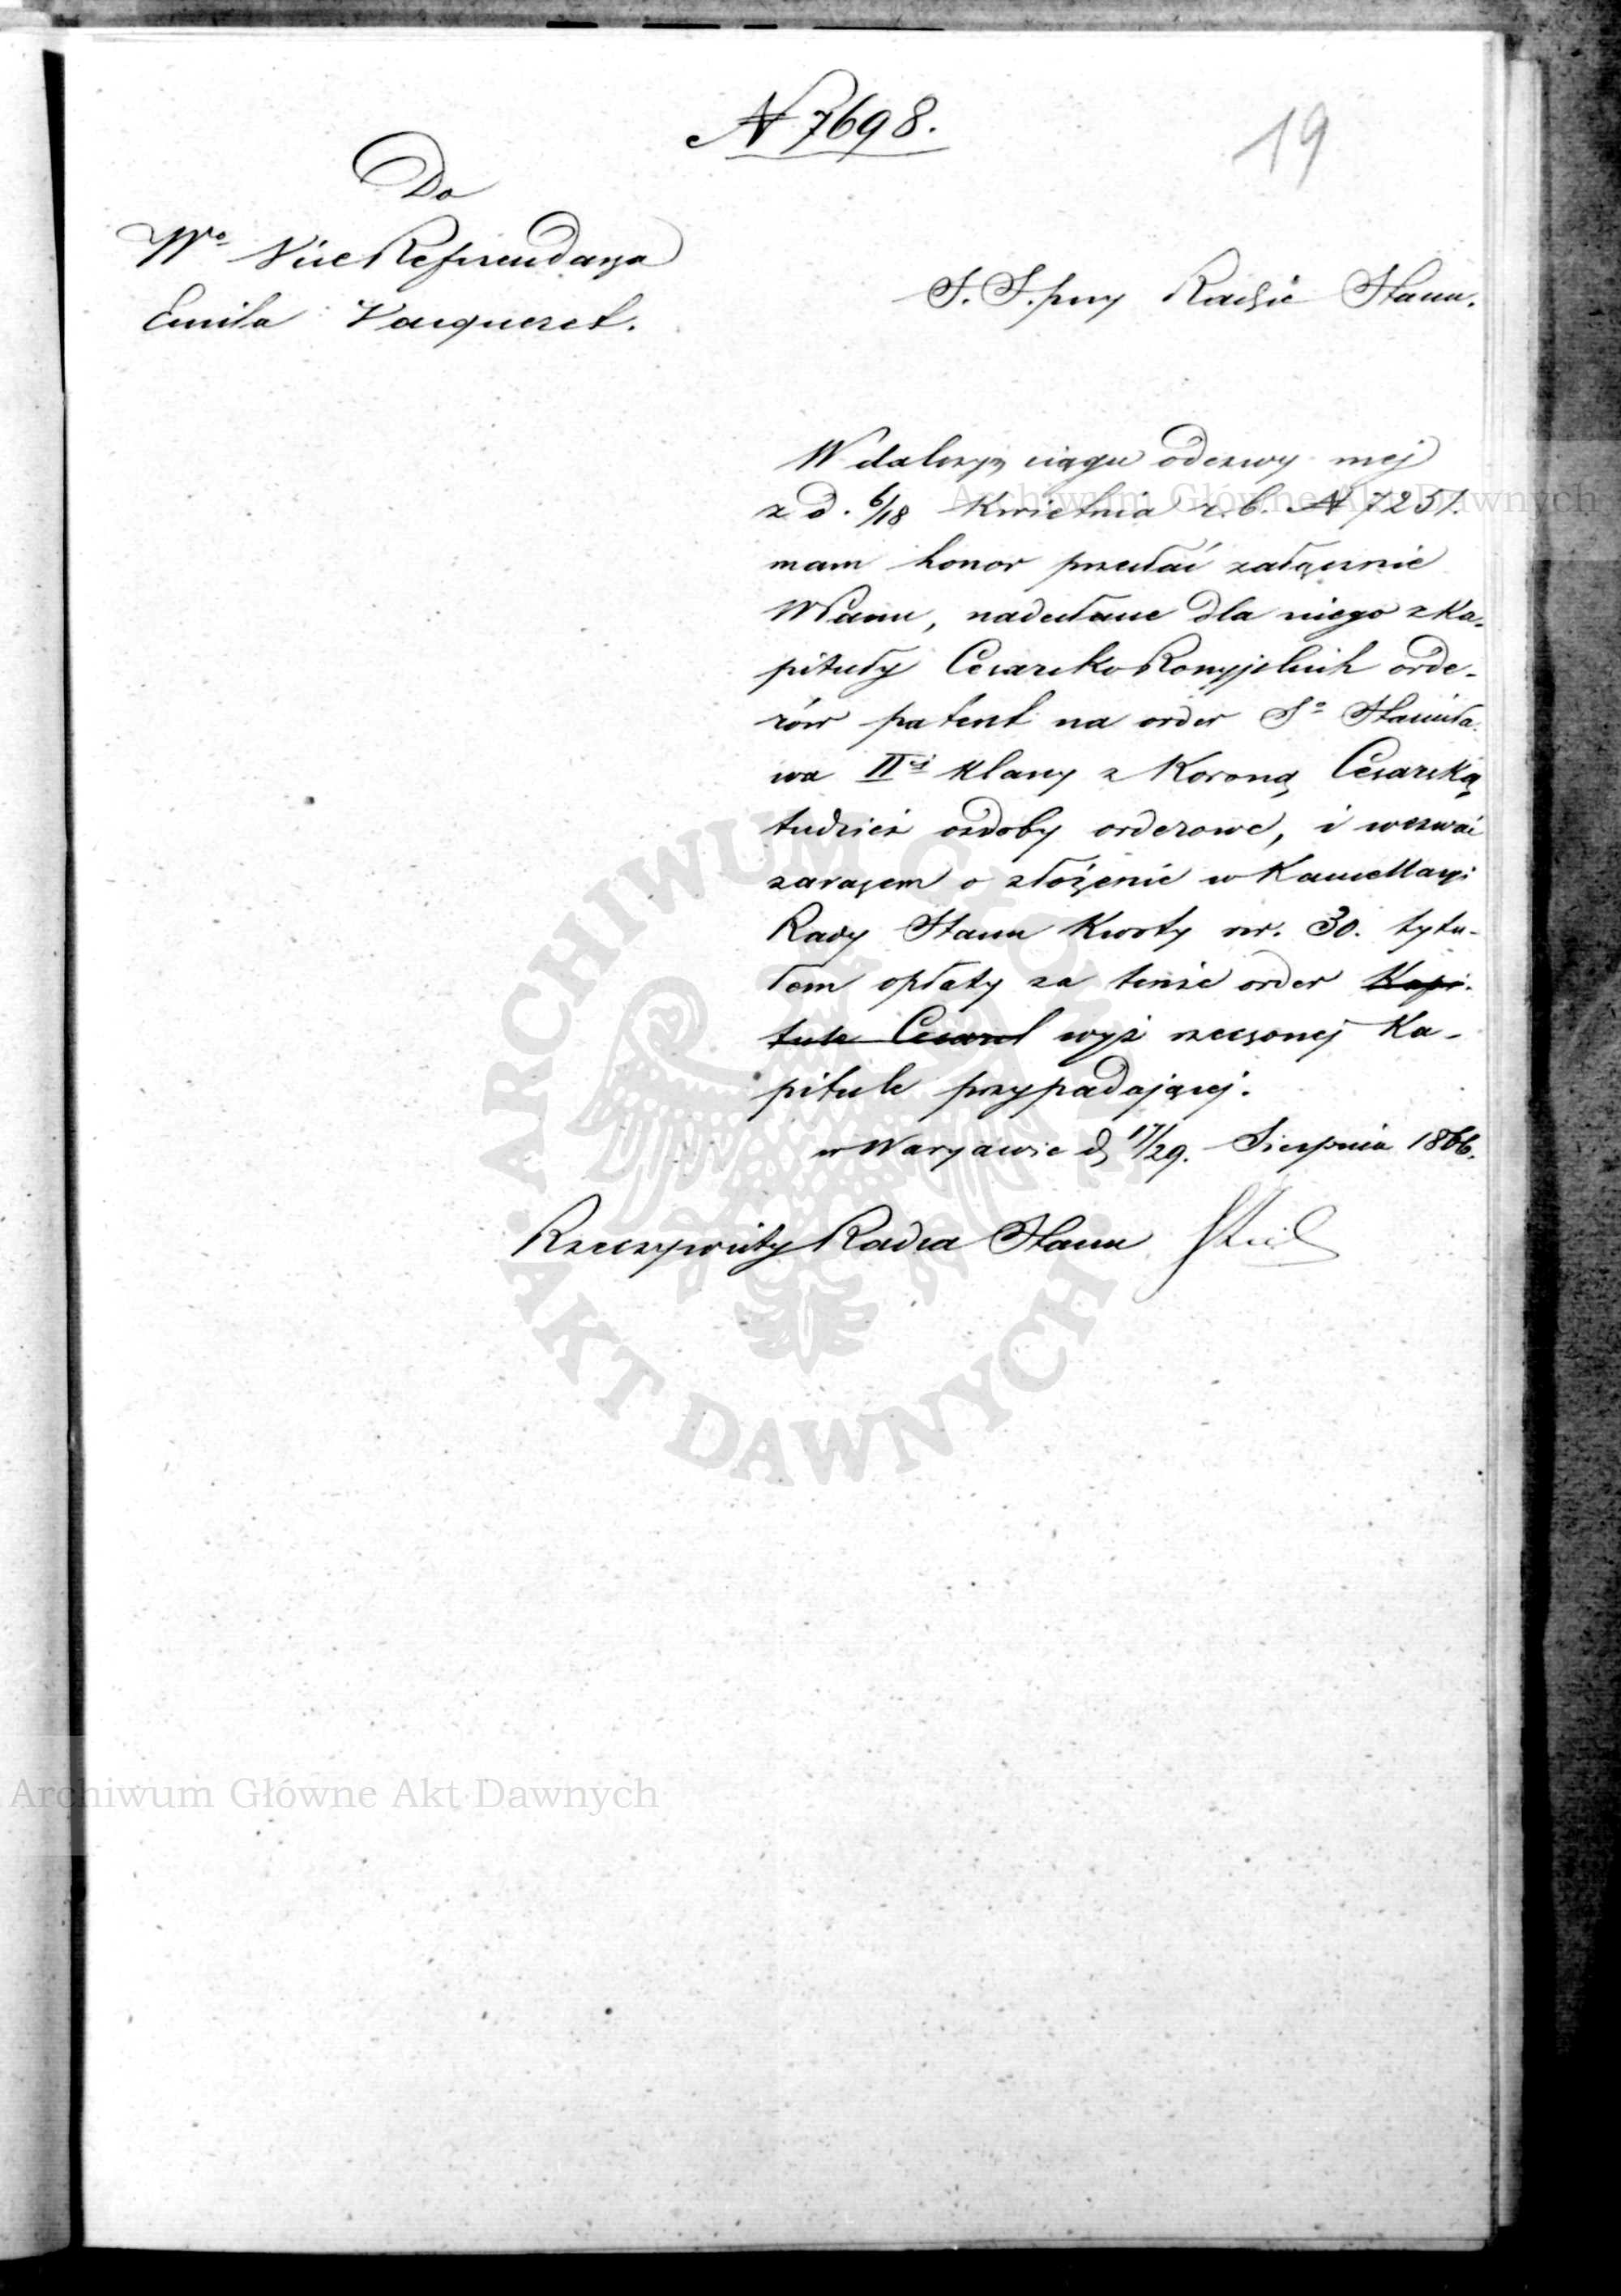 N 7698.
19
Do
Wo Vice Referendarza
Emila Vauqueret.
S. S. przy Radzie Stanu.
W dalszym ciągu odezwy mej
z d. 6/18 Kwietnia r. b. N 7257.
mam honor przesłać załącznie
WPanu, nadesłane dla niego z Ka-
pituły Cesarsko Rossyjskich orde-
rów patent na order So Stanisła-
wa IIej klassy z Koroną Cesarską
tudzież ozdoby orderowe, i wezwać
zarazem o złożenie w Kancellaryi
Rady Stanu Kwoty rsr. 30. tytu-
łem opłaty za tenże order Kapi-
tule Cesarsk wyż rzeczonej Ka-
pitule przypadającej.
w Warszawie d. 17/29. Sierpnia 1866.
Rzeczywisty Radca Stanu
Archiwum Główne Akt Dawnych
ARCHIWUM GŁÓWNE
AKT DAWNYCH
Archiwum Główne Akt Dawnych